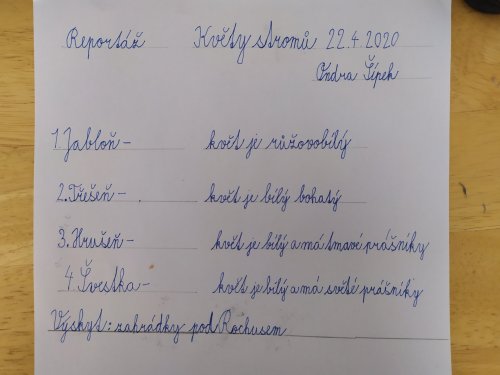 Reportáž Květy stromů 22.4.2020
Ondra Šípek
1. Jabloň - květ je růžovobílý
2. Třešeň - květ je bílý bohatý
3. Hrušeň - květ je bílý a má tmavé prášníky
4. Švestka - květ je bílý a má světé prášníky
Výskyt: zahrádky pod Rochusem